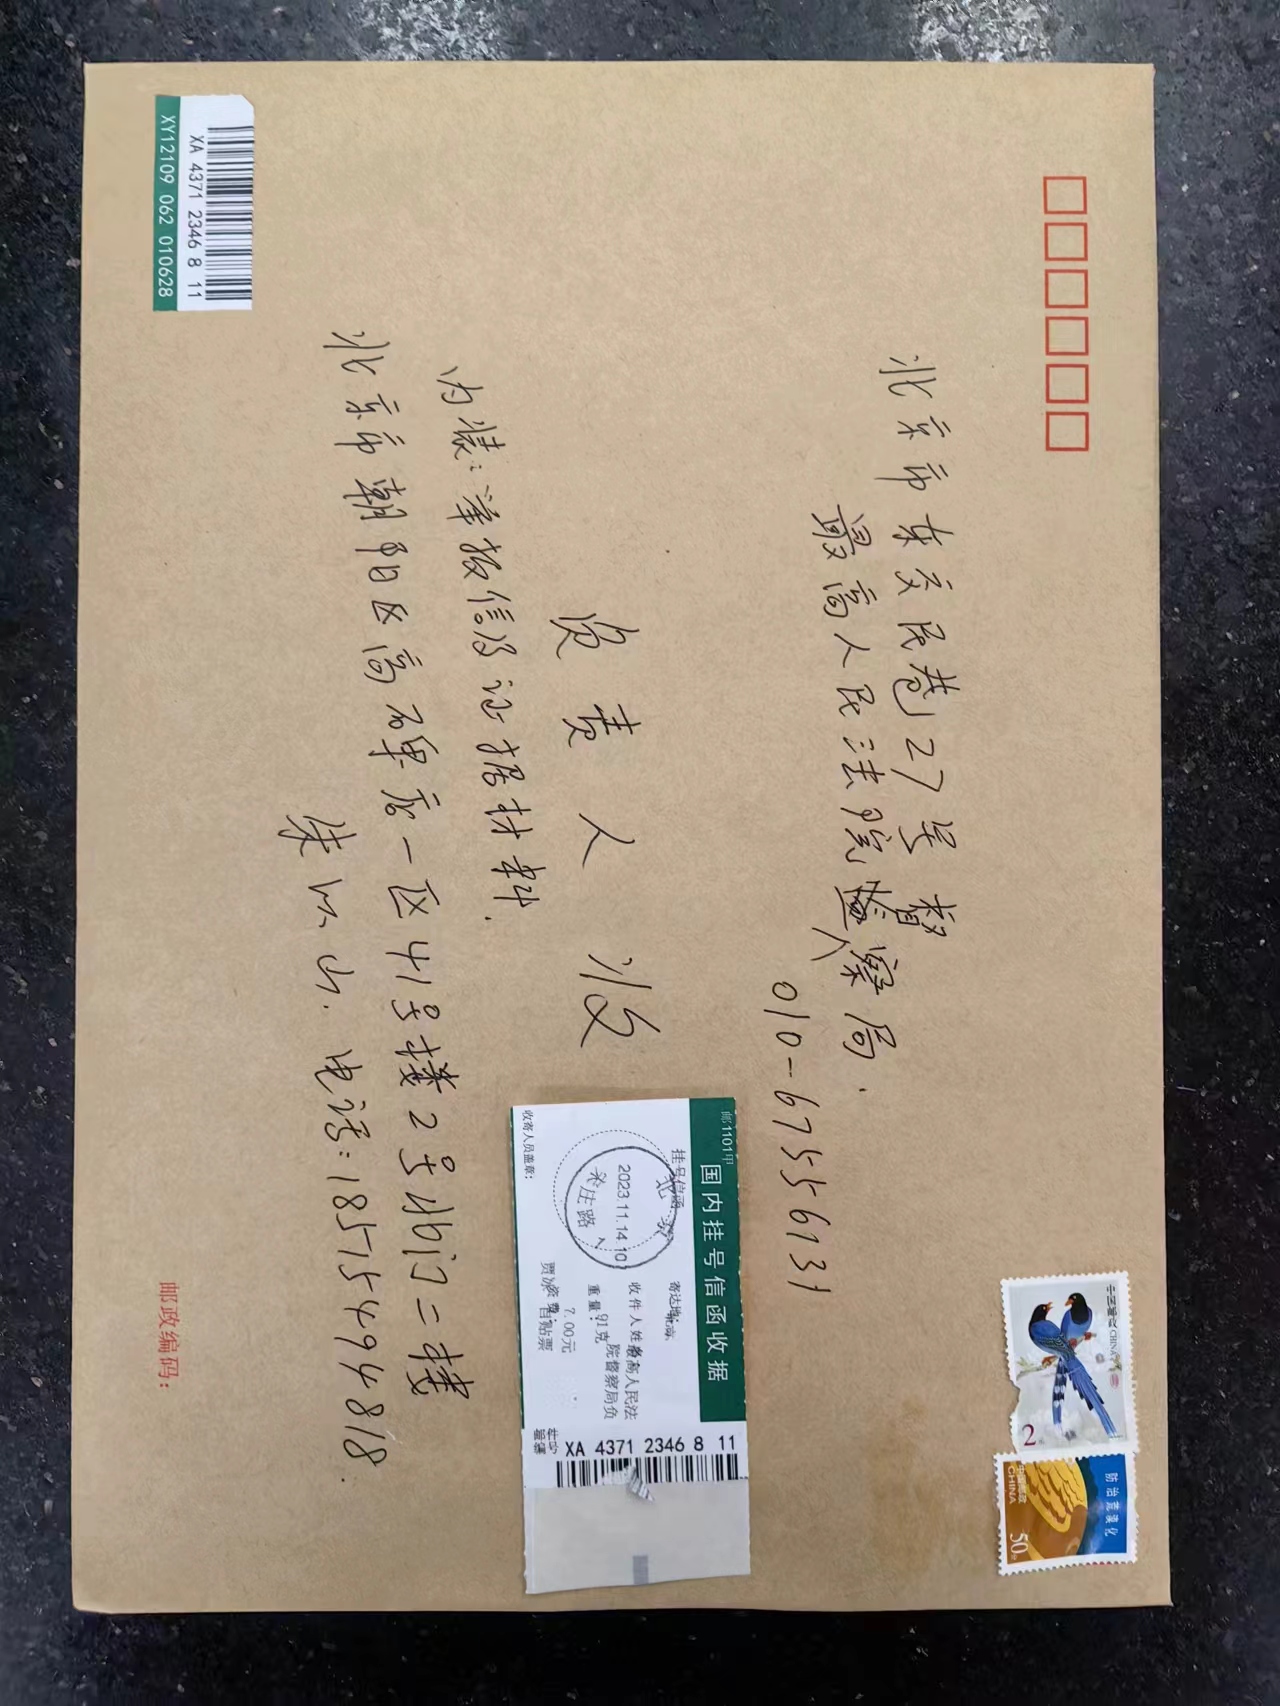 北京市东交民巷27号
最高人民法院督察局.
010-67556131
负责人 收
内装:举报信及证据材料.
北京市朝阳区高碑店一区41号楼2号北门二楼
朱以山. 电话:18515494818.
XA 4371 2346 8 11
XY12109 062 010628
邮1101甲
国内挂号信函收据
挂号信函
寄达地:
收件人姓名:最高人民法
院督察局负
重量: 91克
7.00元
2023.11.14.10
收寄人员盖章:
XA 4371 2346 8 11
中国邮政 CHINA
2元
防治荒漠化
中国邮政
CHINA
50分
邮政编码: